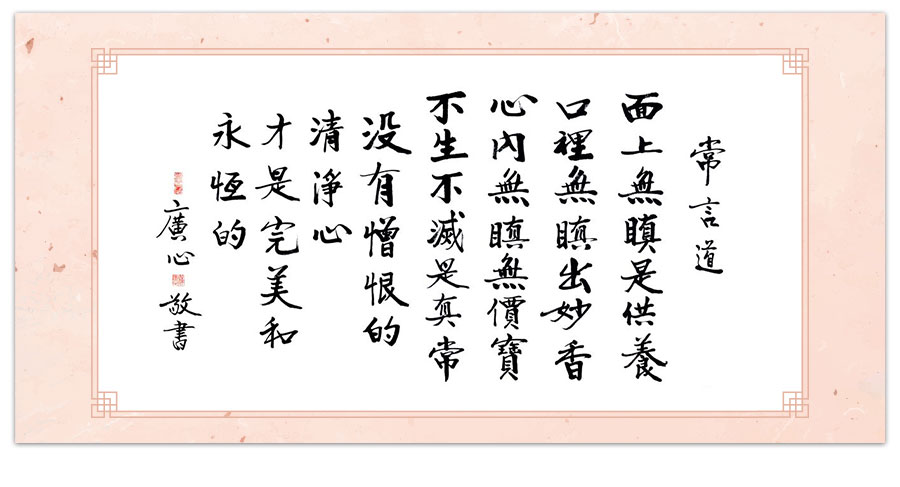 常言道
面上無瞋是供養
口裡無瞋出妙香
心內無瞋無價寶
不生不滅是真常
沒有憎恨的
清淨心
才是完美和
永恆的
廣心 敬書